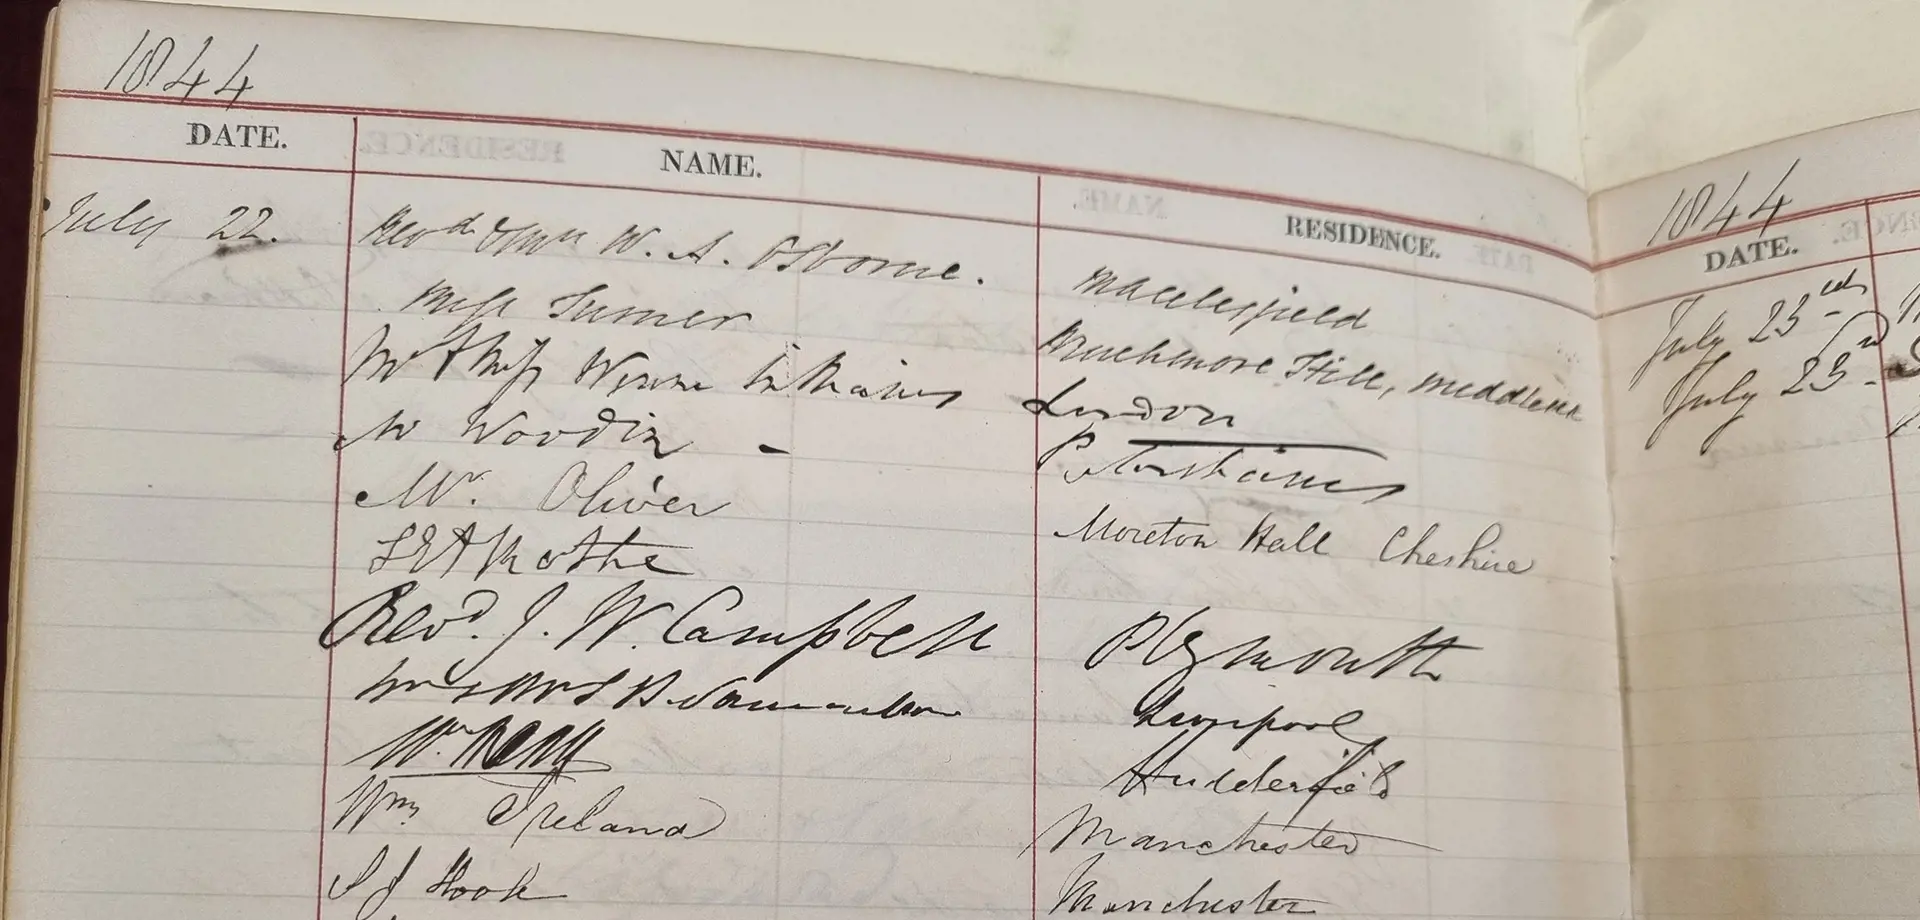 1844
DATE. NAME. RESIDENCE.
July 22. Revd & Mrs W. A. Osborne. Macclesfield
Miss Turner Winchmore Hill, Middlesex
Mr & Miss Winn Williams London
Mr Woodin - Petersham
Mr. Oliver Moreton Hall Cheshire
Rothe
Revd. J. W. Campbell Plymouth
Mr & Mrs Liverpool
Wm Huddersfield
Wm Ireland Manchester
S J Hook Manchester
1844
DATE.
July 23rd
July 23rd